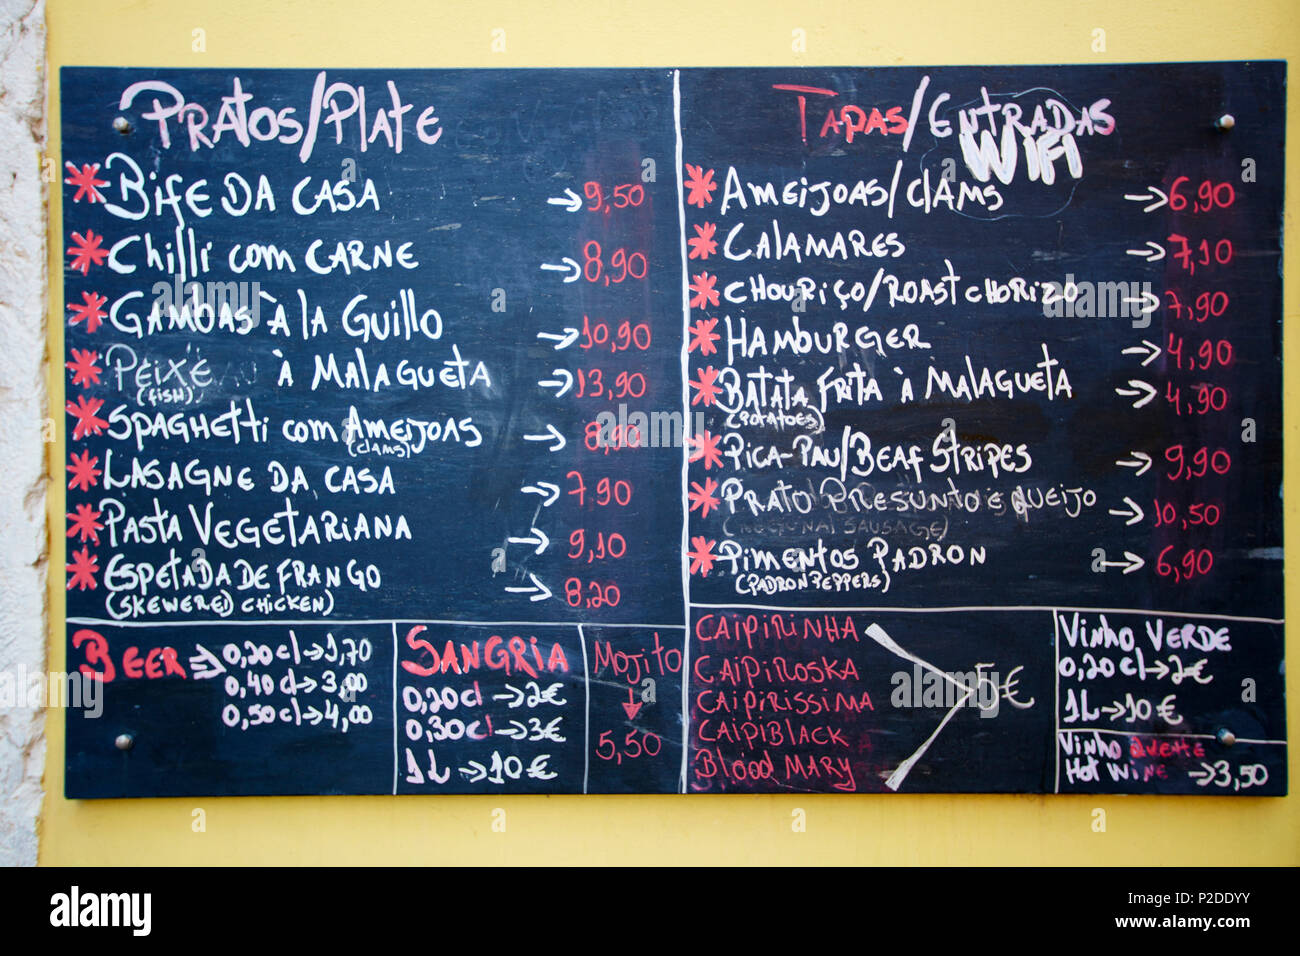 Pratos/Plate
* Bife da casa → 9,50
* Chilli com carne → 8,90
* Gambas à la Guillo → 10,90
* Peixe à Malagueta → 13,90
(fish)
* Spaghetti com Ameijoas → 8,90
(clams)
* Lasagne da casa → 7,90
* Pasta Vegetariana → 9,10
* Espetada de frango → 8,20
(skewered chicken)
Tapas/Entradas
WiFi
* Ameijoas/clams → 6,90
* Calamares → 7,10
* Chouriço/Roast chorizo → 7,90
* Hamburger → 4,90
* Batata frita à Malagueta → 4,90
(Potatoes)
* Pica-Pau/Beaf Stripes → 9,90
* Prato Presunto e Queijo → 10,50
sausage)
* Pimentos Padron → 6,90
(Padron Peppers)
Beer → 0,20cl → 1,70
0,40cl → 3,00
0,50cl → 4,00
Sangria
0,20cl → 2€
0,30cl → 3€
1L → 10€
Mojito
↓
5,50
Caipirinha
Caipiroska
Caipirissima
Caipiblack
Blood Mary
5€
Vinho Verde
0,20cl → 2€
1L → 10€
Vinho Quente
Hot Wine → 3,50
alamy
a
alamy stock photo
alamy
Image ID: P2DDYY
www.alamy.com